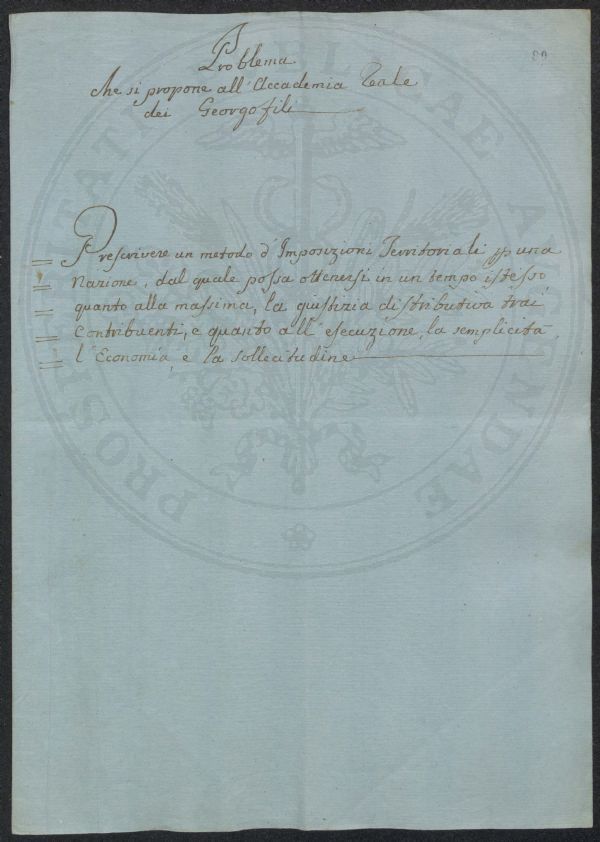 89
Problema
che si propone all'Accademia Reale
dei Georgofili
Prescrivere un metodo d'Imposizioni Territoriali p una
Nazione, dal quale possa ottenersi in un tempo istesso
quanto alla massima, la giustizia distributiva trai
Contribuenti, e quanto all'esecuzione, la semplicità
l'Economia, e la sollecitudine
PROSPERITATI PUBLICAE AUGENDAE